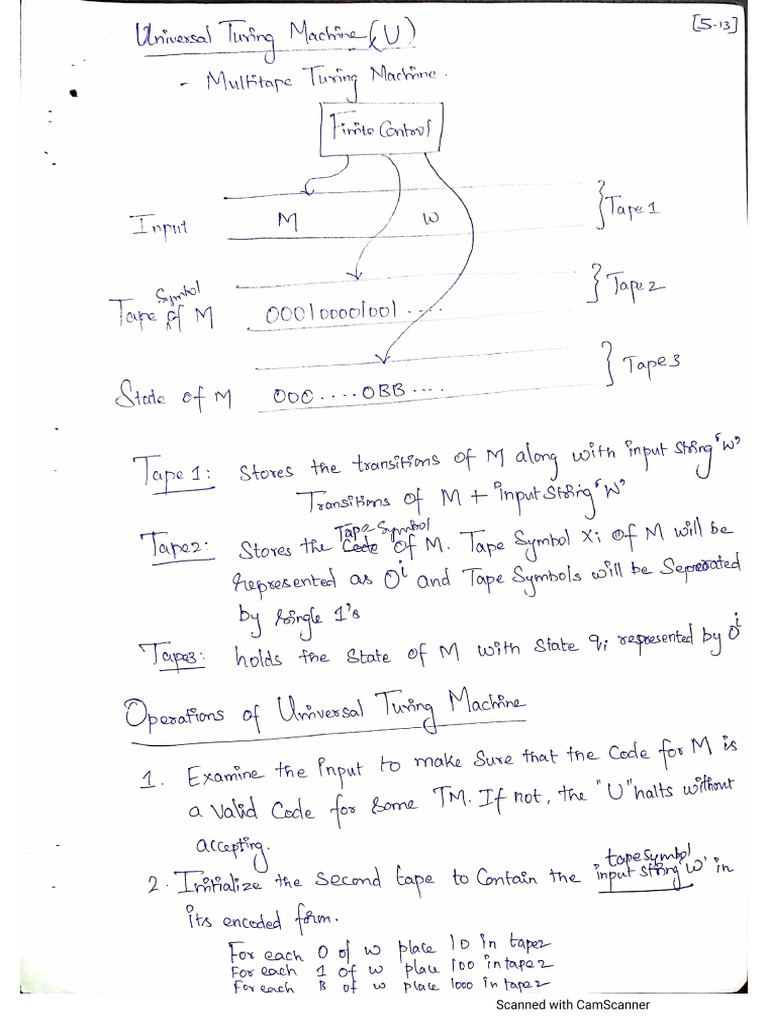 [5-13]
Universal Turing Machine (U)
- Multitape Turing Machine.
Finite Control
Input M W } Tape 1
Tape Symbol of M 000100001001 .... } Tape 2
State of M 000....0BB.... } Tape 3
Tape 1: Stores the transitions of M along with input string 'W'
Transitions of M + input string 'W'
Tape Symbol
Tape 2: Stores the Code of M. Tape Symbol Xi of M will be
represented as 0^i and Tape Symbols will be Seperated
by single 1's
Tape3: holds the State of M with State qi represented by 0^i
Operations of Universal Turing Machine
1. Examine the input to make sure that the Code for M is
a valid Code for some TM. If not, the "U" halts without
accepting.
tape symbol
2. Initialize the second tape to Contain the input string 'W' in
its encoded form.
For each 0 of w place 10 in tape2
For each 1 of w place 100 in tape2
For each B of w place 1000 in tape2
Scanned with CamScanner